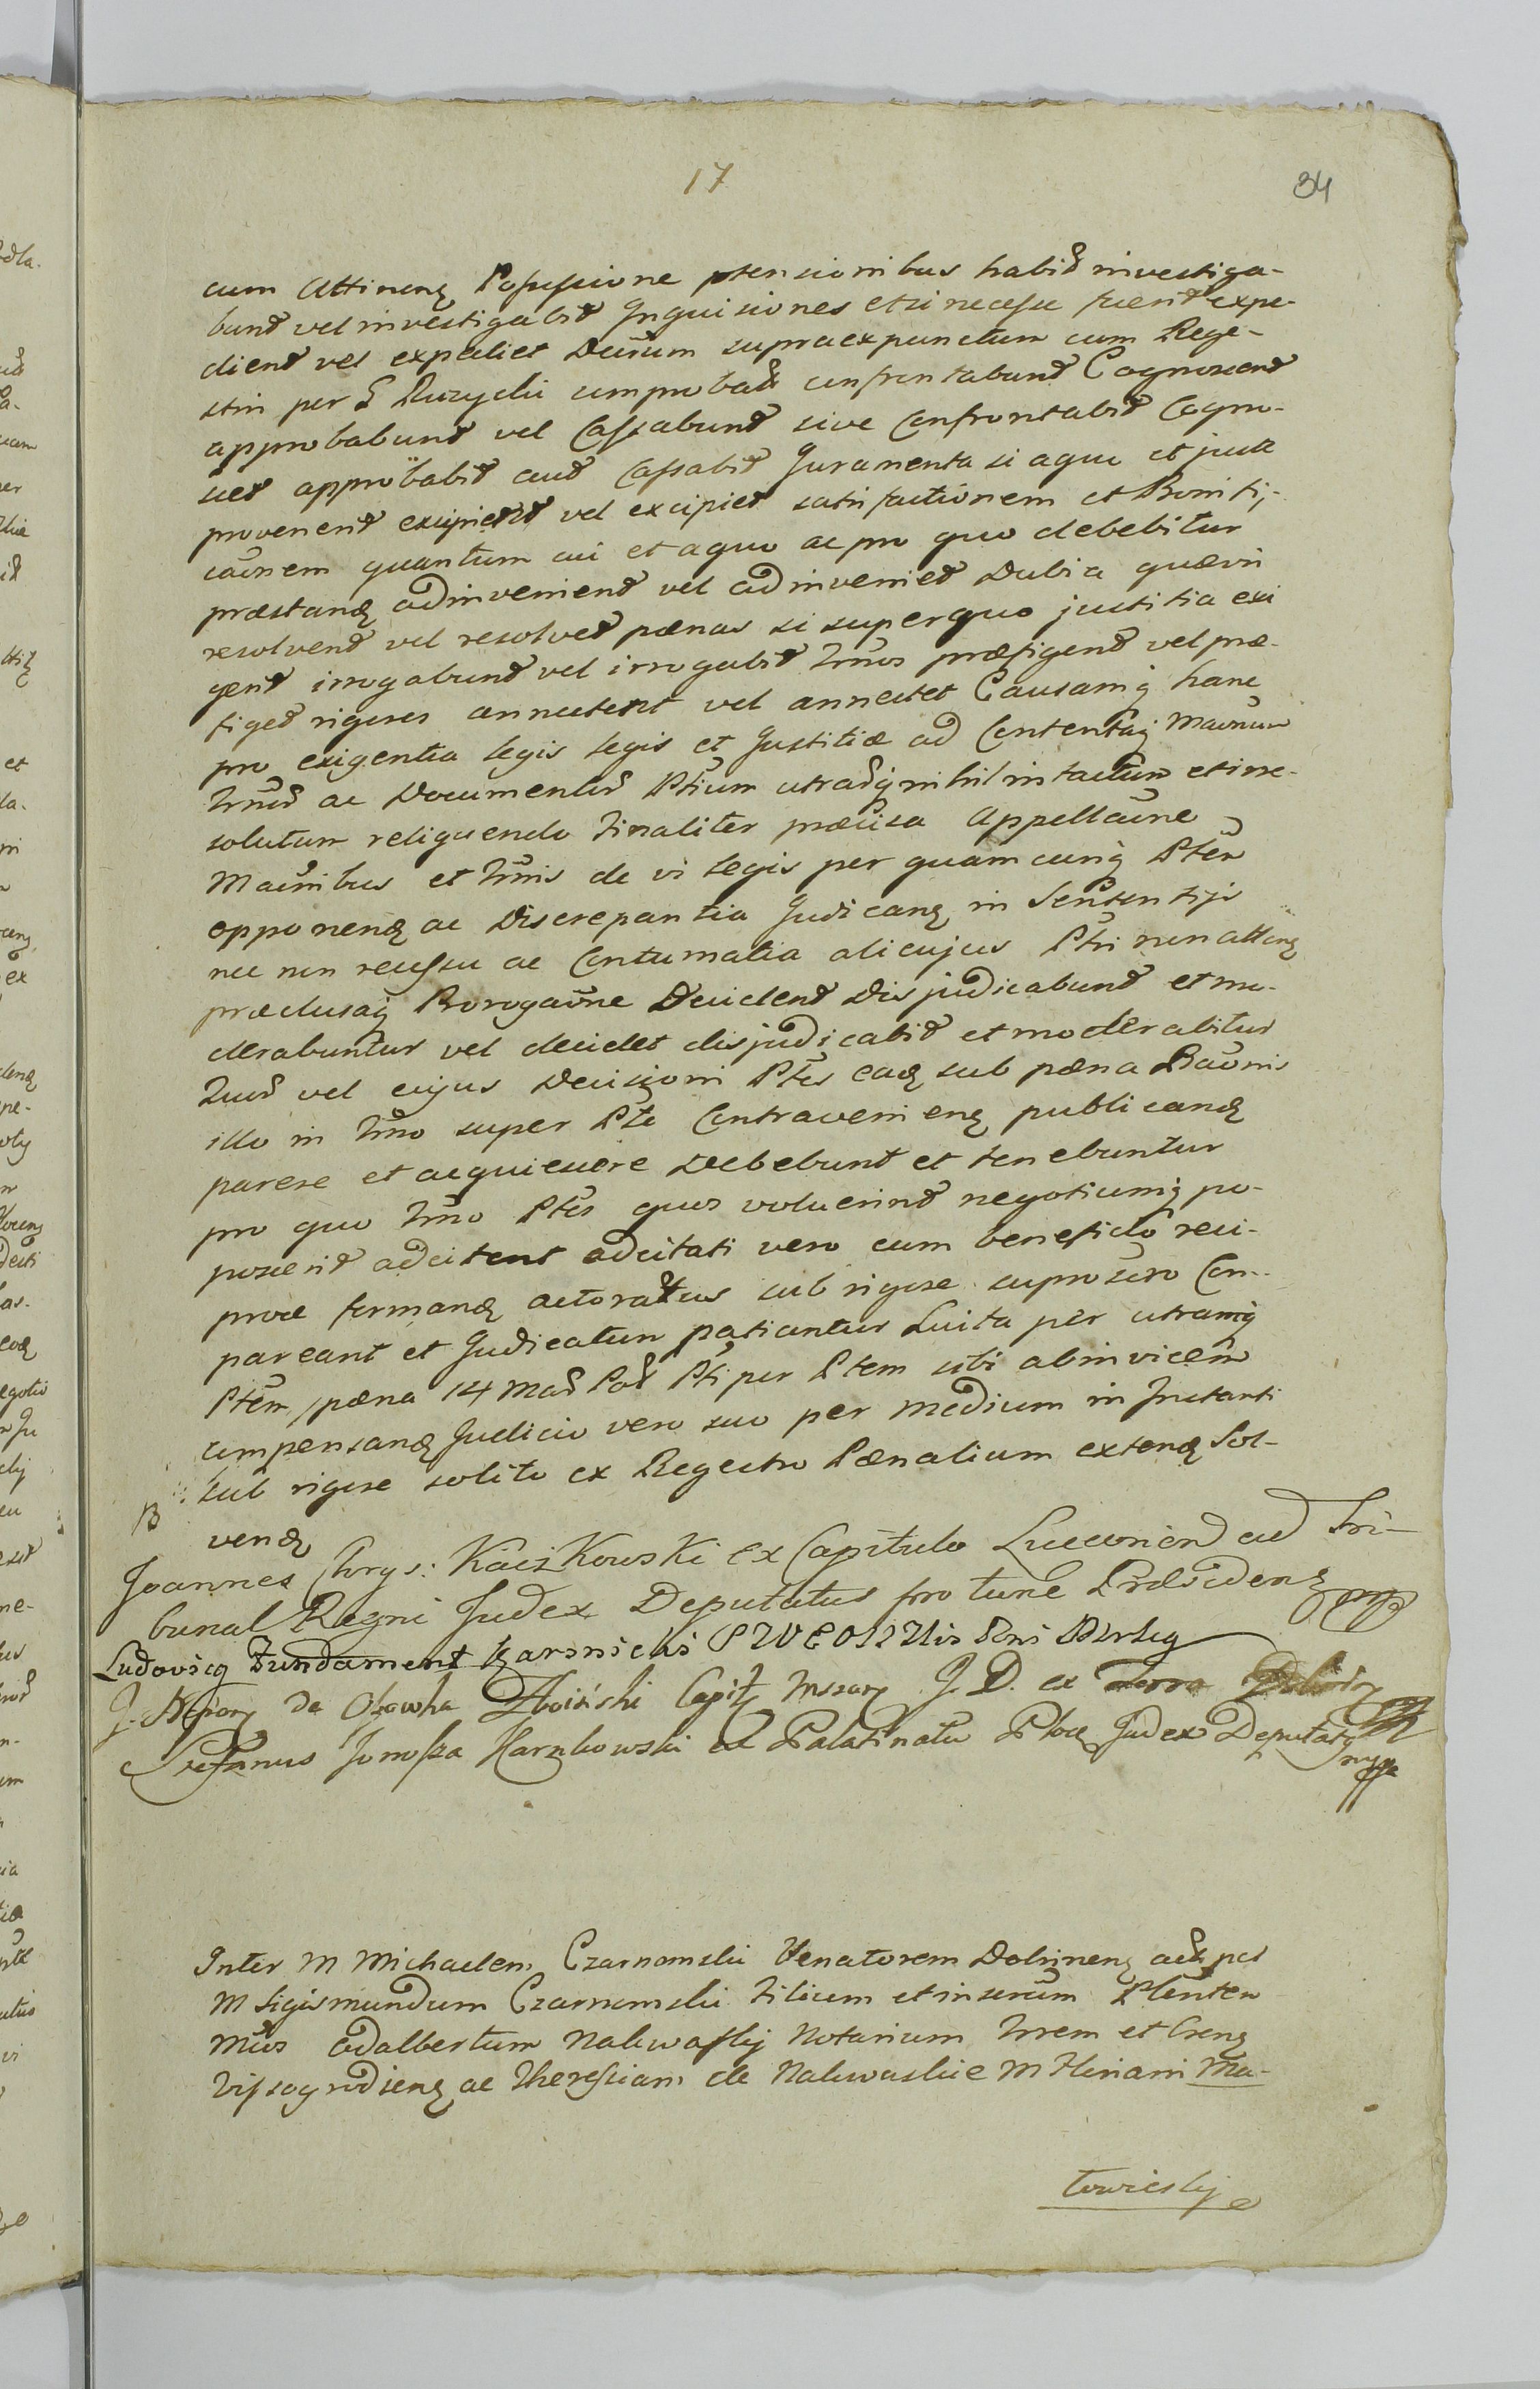 17
34
cum Attineng Possessione ptensionibus habid investiga-
bund vel investigabit Inquisiones et si necesse fuerit expe-
dient vel expediet Decisum supraexpunctum cum Rege-
stris per G Ruzycki comprobatt confrontabund Cognoscend
approbabund vel Cassabund sive Confrontabit Cogno-
scet approbabit aud Cassabit Juramenta si a quo et juste
provenerit excipient vel excipiet satisfactionem et Bonifi-
caonem quantum cui et a quo ac pro quo debebitur
præstang adinvenient vel adinveniet Dubia quævis
resolvent vel resolvet pænas si super quo justitia exi
gerit irrogabund vel irrogabit Tmos præfigent vel præ-
figet rigores annectent vel annectet Causamq hanc
pro exigentia legis legis et Justitiæ ad Contentaq
Tmid ac Documentid Ptium utradq nihil intactum et irre-
solutum relinquendo finaliter præcisa Appellaone
Maonibus et Tmis de vi legis per quamcunq Ptem
opponeng ac Discrepantia Judicang in Sententijs
nec non recessu ac Contumatia alicujus Ptis non atteng
præclusaq Prorogaone Decident Disjudicabund et mo-
derabuntur vel decidet disjudicabit et moderabitur
Quod vel cujus Decisioni Ptes eaq sub pæna Baonis
illo in Tmo super Pte Contravenieng publicang
parere et acquiescere Debebunt et tenebuntur
pro quo Tmo Ptes quos voluerint negotiumq po-
poscerit adcitent adcitati vero cum beneficio reci-
proce formang actoratus sub rigore supra sero Com-
pareant et Judicatum patiantur Luita per utramq
Ptem pæna 14 Mad Pol Pti per Ptem sibi abinvicem
compensang Judicio vero suo per medium in Instanti
sub rigore solito ex Regestro Pænalium exteng Sol-
veng
B
Joannes Chrys: Kaczkowski ex Capitulo Luceorien ad Tri-
bunal Regni Judex Deputatus pro tunc Præsidens mpp
Ludovicq Fundament Karsnicki
J. de Ossowka Zboinski Capit Mszan J. D. ex Terra
Stefanus Junosza Karnkowski ex Palatinatu Ploc Judex Deputatq mppa
Inter M Michaelem Czarnomski Venatorem Dobrineng
M Sigismundum Czarnomski filium et inserum Plenten
Mcos Adalbertum Nakwaskij Notarium Trrem et Creng
Vissogrodieng ac Theressiam de Nakwaskie M Floriani Ma-
towieskij